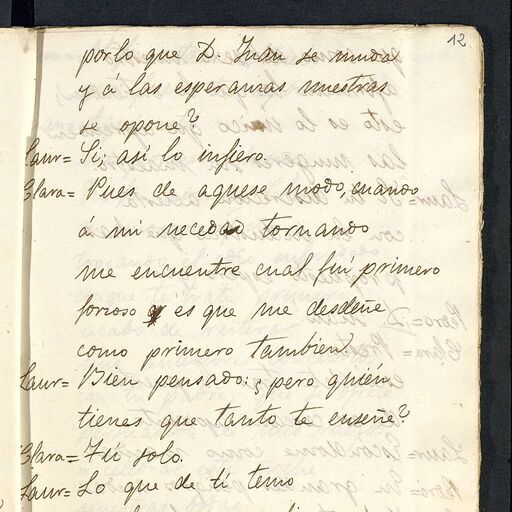 12
por lo que D. Juan se muda
y á las esperanzas nuestras
se opone?
Laur= Si, así lo infiero.
Clara= Pues de aquese modo, cuando
á mi necedad tornando
me encuentre cual fuí primero
forzoso es que me desdeñe
como primero tambien
Laur= Bien pensado: ¿pero quién
tienes que tanto te enseñe?
Clara= Tú solo.
Laur= Lo que de tí temo